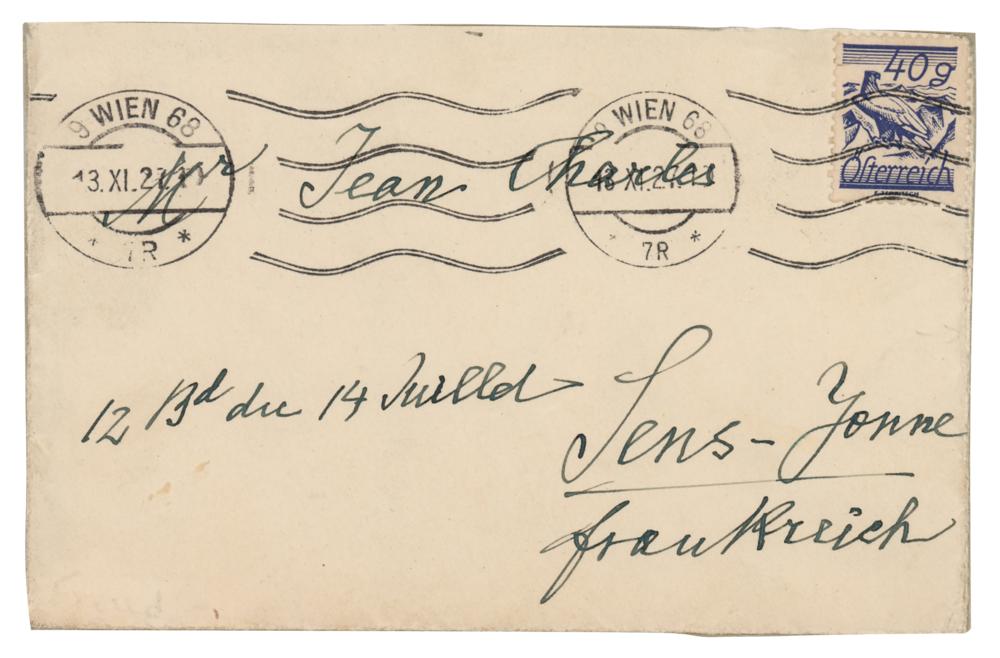 40g
Österreich
9 WIEN 68
13. XI. 27. 11
* 7R *
9 WIEN 68
* 7R *
Mr Jean Charles
12 Bd du 14 Juilled
Sens - Yonne
frankreich